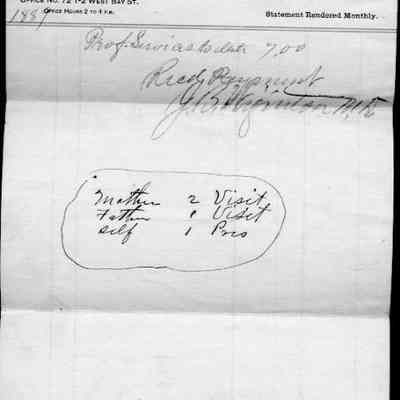 OFFICE NO. 72 1-2 WEST BAY ST.
OFFICE HOURS 2 TO 4 P.M.
Statement Rendered Monthly.
1887
Prof. Services to date 7.00
Recd Payment
Mother 2 Visit
Father 1 Visit
Self 1 Pres